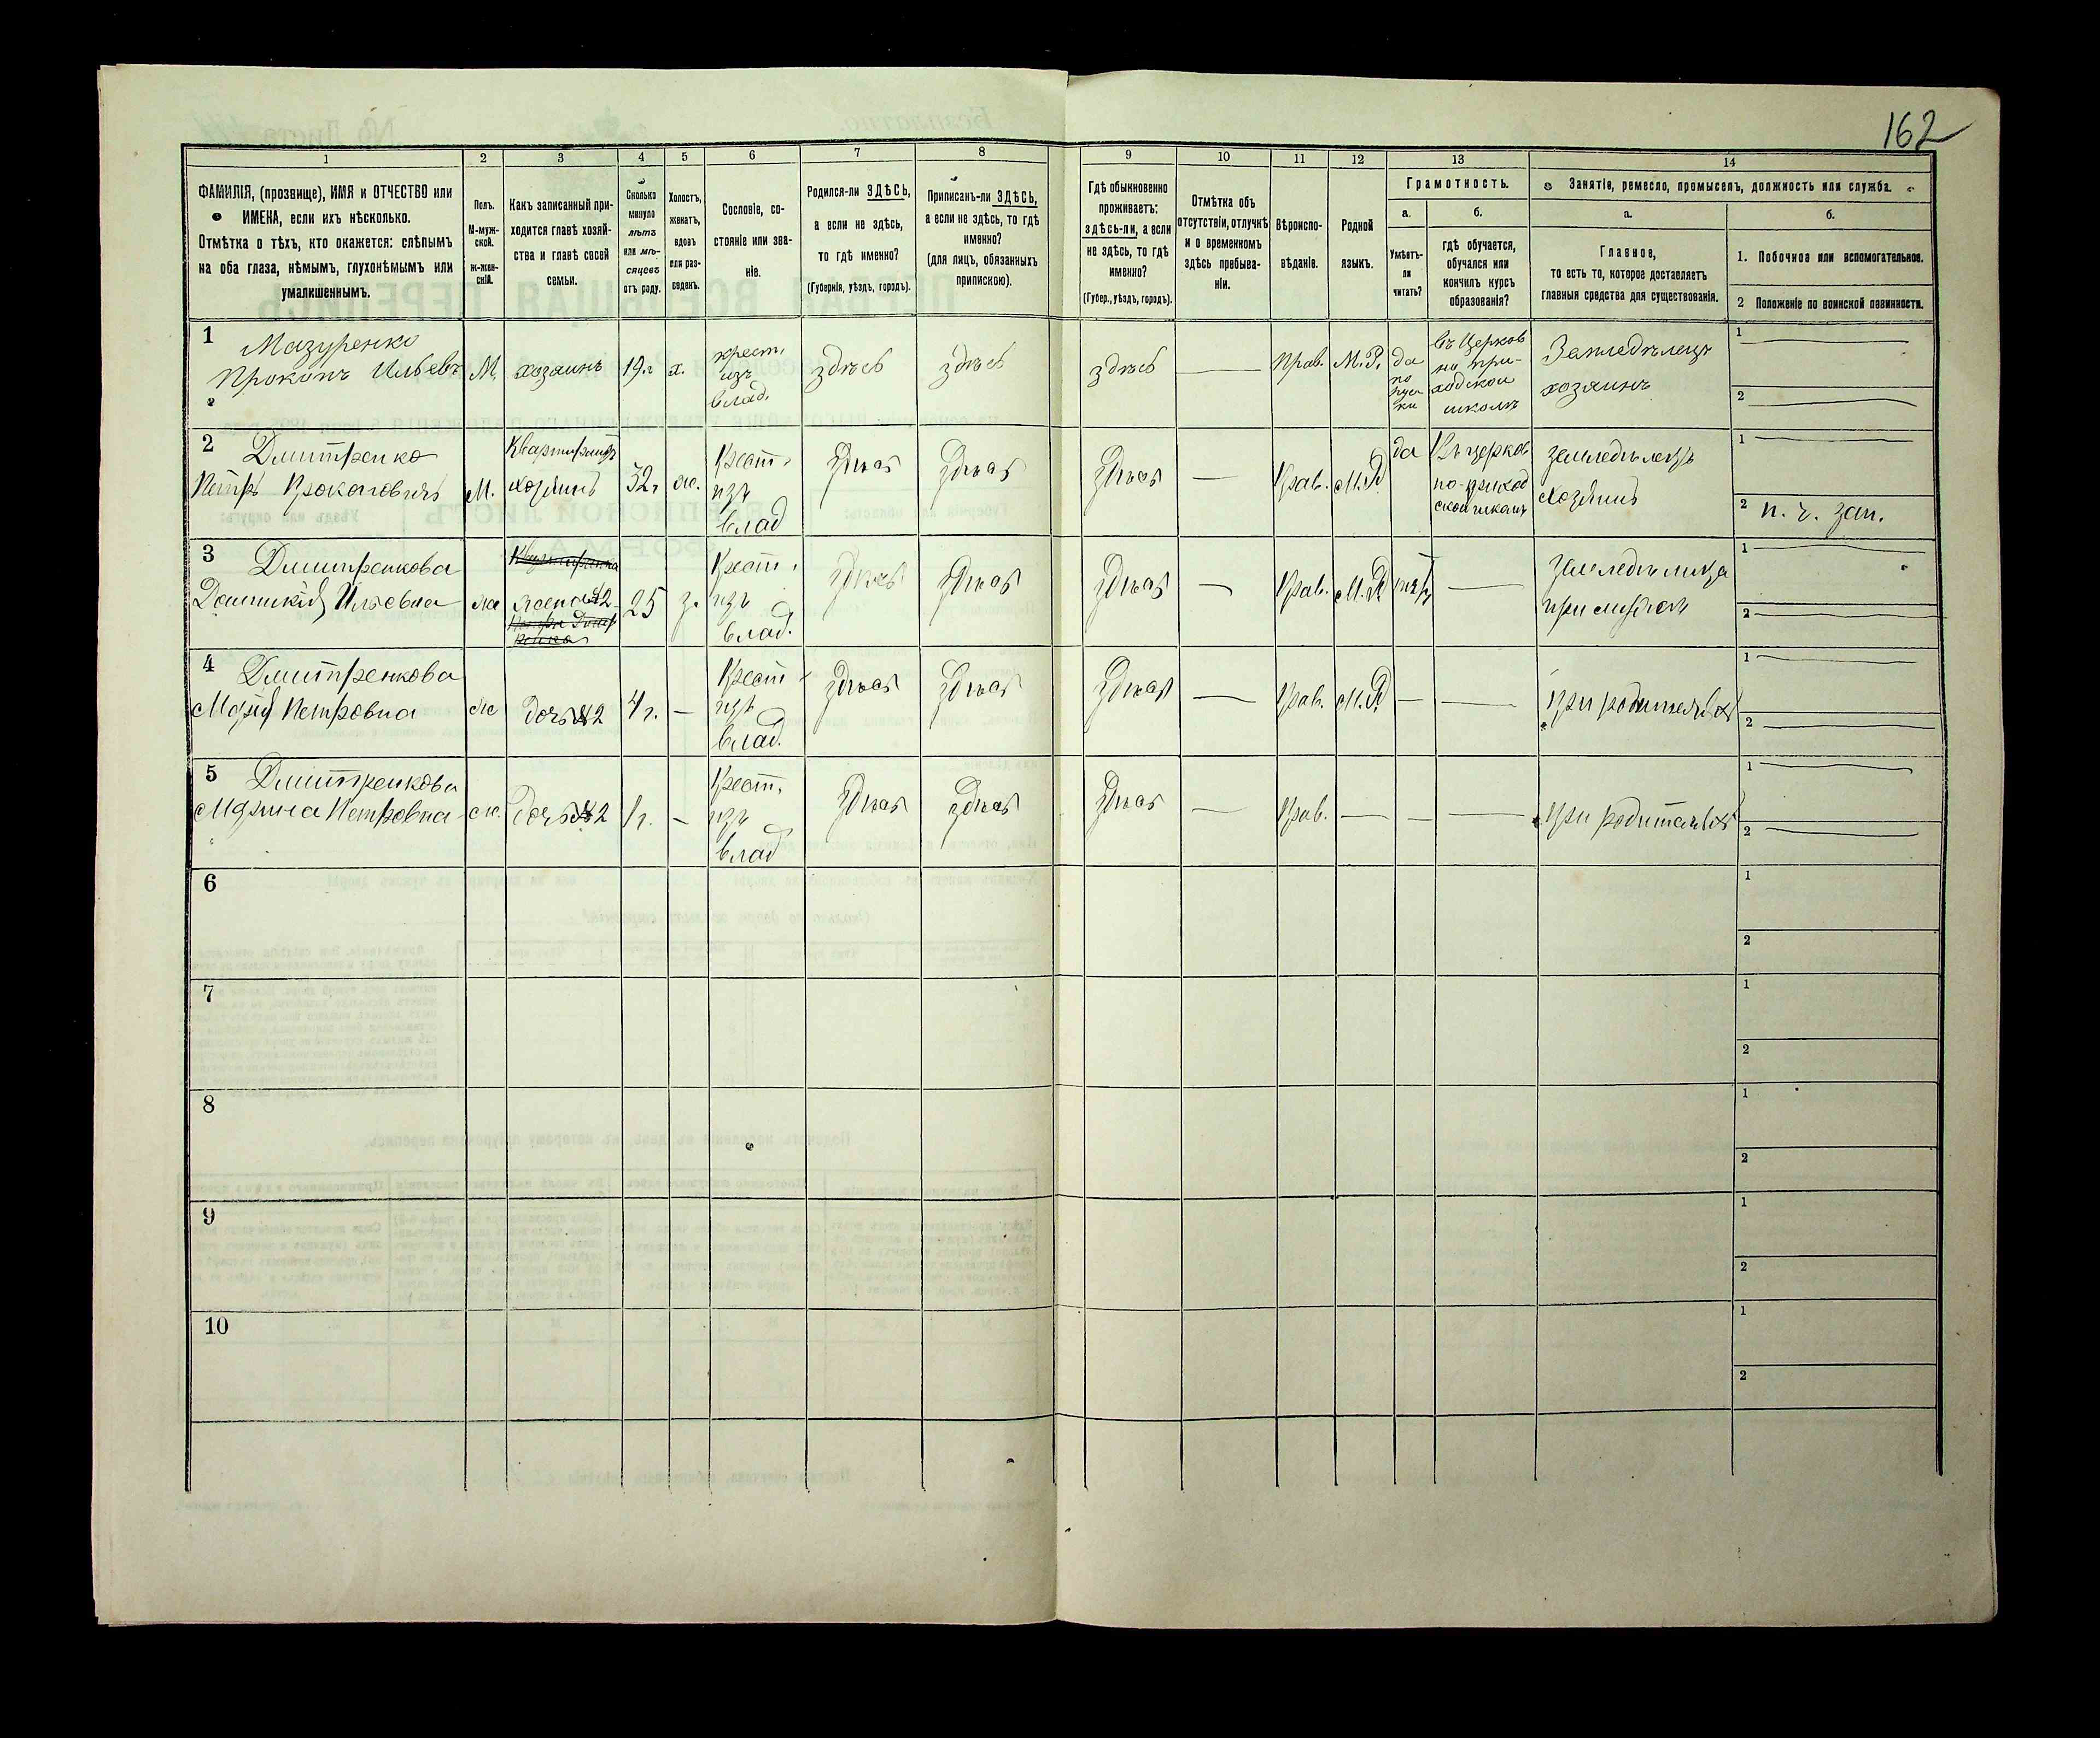 162
1 2 3 4 5 6 7 8 9 10 11 12 13 14
ФАМИЛІЯ, (прозвище), ИМЯ и ОТЧЕСТВО или
ИМЕНА, если ихъ нѣсколько.
Отмѣтка о тѣхъ, кто окажется: слѣпымъ
на оба глаза, нѣмымъ, глухонѣмымъ или
умалишеннымъ.
Полъ.
М-муж-
ской.
ж-жен-
скій.
Какъ записанный при-
ходится главѣ хозяй-
ства и главѣ своей
семьи.
Сколько
минуло
лѣтъ
или мѣ-
сяцевъ
отъ роду.
Холостъ,
женатъ,
вдовъ
или раз-
веденъ.
Сословіе, со-
стояніе или зва-
ніе.
Родился-ли ЗДѢСЬ,
а если не здѣсь,
то гдѣ именно?
(Губернія, уѣздъ, городъ).
Приписанъ-ли ЗДѢСЬ,
а если не здѣсь, то гдѣ
именно?
(для лицъ, обязанныхъ
припискою).
Гдѣ обыкновенно
проживаетъ:
здѣсь-ли, а если
не здѣсь, то гдѣ
именно?
(Губер., уѣздъ, городъ).
Отмѣтка объ
отсутствіи, отлучкѣ
и о временномъ
здѣсь пребыва-
ніи.
Вѣроиспо-
вѣданіе.
Родной
языкъ.
Грамотность.
а.
Умѣетъ-
ли
читать?
б.
гдѣ обучается,
обучался или
кончилъ курсъ
образованія?
Занятіе, ремесло, промыселъ, должность или служба.
а.
Главное,
то есть то, которое доставляетъ
главныя средства для существованія.
б.
1. Побочное или вспомогательное.
2 Положеніе по воинской повинности.
1
Мазуренко
Прокопъ Ильевъ
М.
хозяинъ
19.г
х.
крест.
изъ
влад.
здѣсь
здѣсь
здѣсь
Прав.
М.Р.
да
по
ки
въ Церков
но при-
ходской
школѣ
Земледѣлецъ
хозяинъ
1
2
2
Дмитренко
Петръ Прокоповичъ
М.
хозяинъ
32г
ж.
Крест.
изъ
влад
здѣсь
здѣсь
здѣсь
Прав.
М.Р
да
Въ церков
но-приход
ской школѣ
земледѣлецъ
хозяинъ
1
2 п. ч. зап.
3
Дмитренкова
Ильевна
же
жена №2
25
з.
Крест.
изъ
влад.
здѣсь
здѣсь
здѣсь
Прав.
М.Р
нѣтъ
при мужѣ
1
2
4
Дмитренкова
Петровна
же
дочь №2
4 г.
Крест
изъ
влад.
здѣсь
здѣсь
здѣсь
Прав.
М.Р
при родителяхъ
1
2
5
Дмитренкова
Марина Петровна
же.
дочь №2
1 г.
Крест.
изъ
влад
здѣсь
здѣсь
здѣсь
Прав.
при родителяхъ
1
2
6
1
2
7
1
2
8
1
2
9
1
2
10
1
2